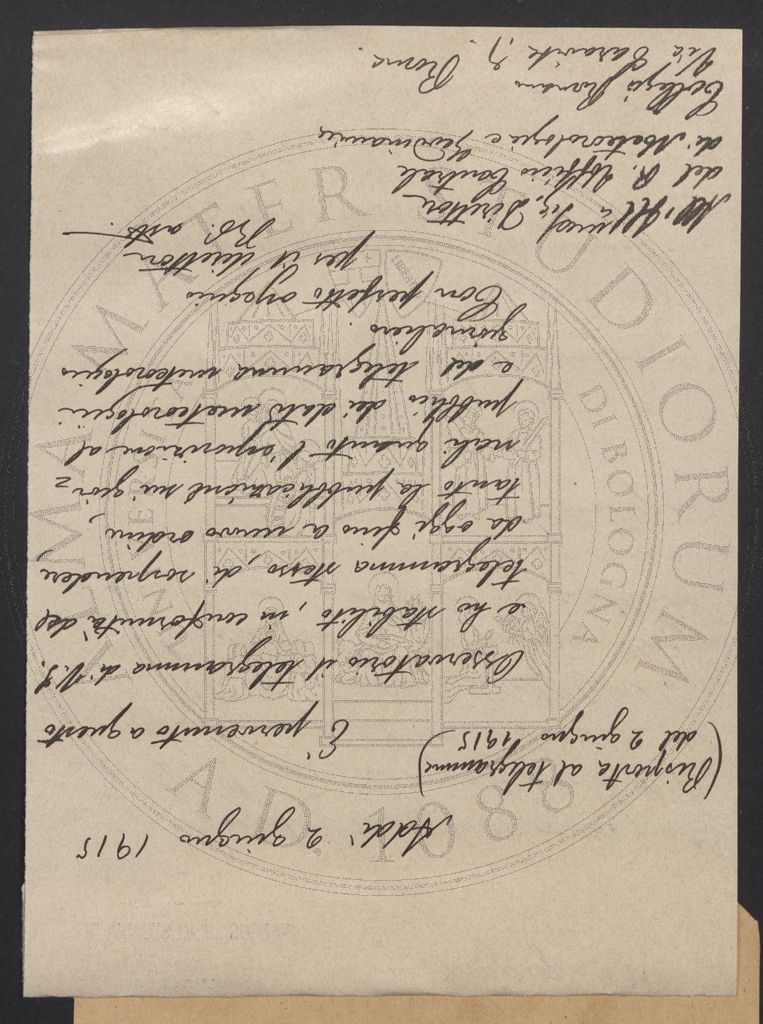 Addì 2 giugno 1915
(Risposta al telegramma
del 2 giugno 1915)
È pervenuto a questo
Osservatorio il telegramma di V.S.
e ho stabilito, in conformità del
telegramma stesso, di sospendere
da oggi fino a nuovo ordine,
tanto la pubblicazione sui gior=
nali quanto l'esposizione al
pubblico dei dati meteorologici
e del telegramma meteorologico
giornaliero.
Con perfetto ossequio
per il direttore
Sig. Direttore
del R. Ufficio Centrale
di Meteorologia e Geodinamica
Collegio Romano
Via Caravita 7, Roma.
ALMA MATER STUDIORUM
A.D. 1088
DI BOLOGNA